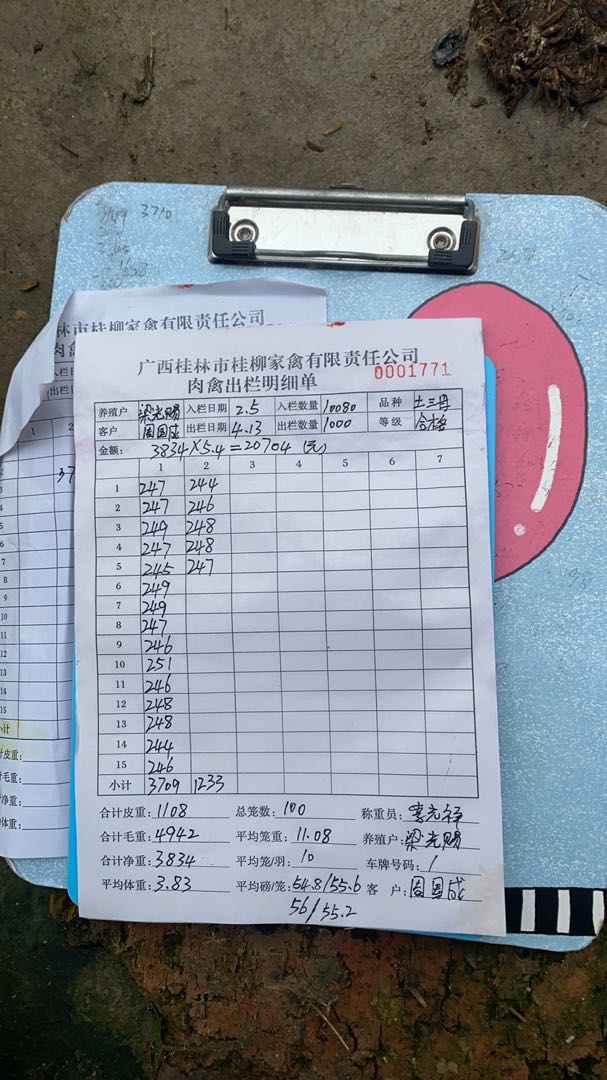 3710
林市桂柳家禽有限责任公司
广西桂林市桂柳家禽有限责任公司
肉禽出栏明细单
0001771
养殖户 梁光赐 入栏日期 2.5 入栏数量 10080 品种 土三丹
客户 周国成 出栏日期 4.13 出栏数量 1000 等级 合格
金额: 3834×5.4=20704 (元)
1 2 3 4 5 6 7
1 247 244
2 247 246
3 249 248
4 247 248
5 245 247
6 249
7 249
8 247
9 246
10 251
11 246
12 248
13 248
14 244
15 246
小计 3709 1233
合计皮重: 1108 总笼数: 100 称重员:
合计毛重: 4942 平均笼重: 11.08 养殖户: 梁光赐
合计净重: 3834 平均笼/羽: 10 车牌号码: /
平均体重: 3.83 平均磅/笼: 54.8/55.6 客 户: 周国成
56/55.2